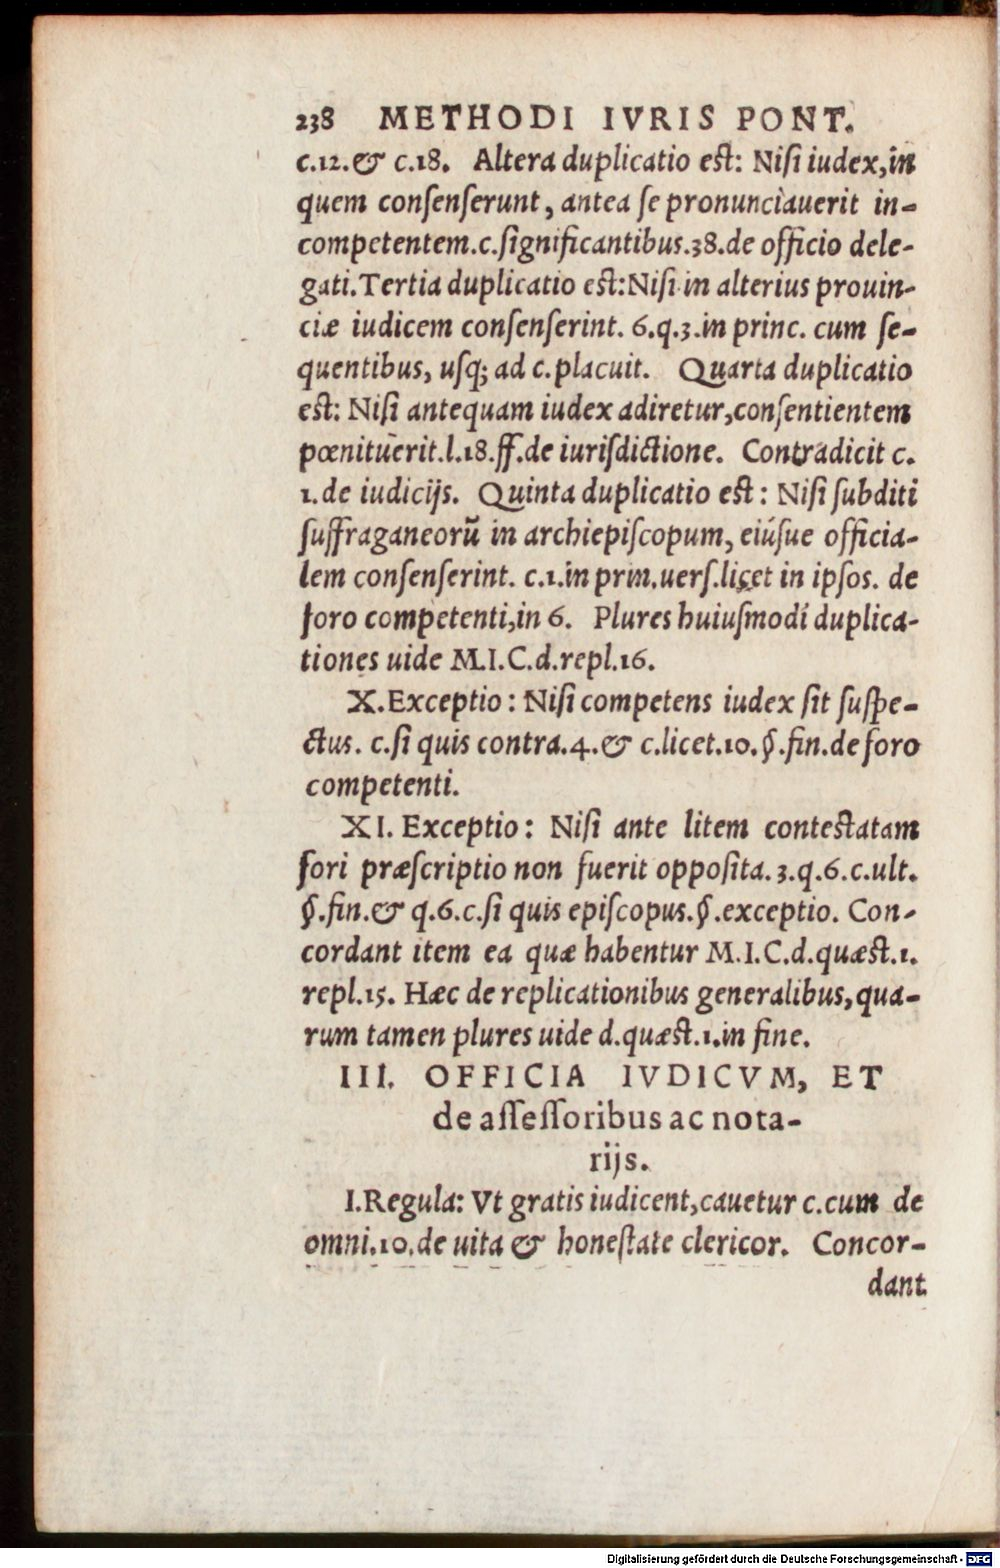 238 METHODI IVRIS PONT.
c.12.& c.18. Altera duplicatio est: Nisi iudex,in
quem consenserunt, antea se pronunciauerit in-
competentem.c.significantibus.38.de officio dele-
gati.Tertia duplicatio est:Nisi in alterius prouin-
ciæ iudicem consenserint. 6.q.3.in princ. cum se-
quentibus, usq; ad c.placuit. Quarta duplicatio
est: Nisi antequam iudex adiretur,consentientem
pœnituerit.l.18.ff.de iurisdictione. Contradicit c.
1.de iudicijs. Quinta duplicatio est: Nisi subditi
suffraganeorū in archiepiscopum, eiúsue officia-
lem consenserint. c.1.in prin.uers.licet in ipsos. de
foro competenti,in 6. Plures huiusmodi duplica-
tiones uide M.I.C.d.repl.16.
X.Exceptio: Nisi competens iudex sit suspe-
ctus. c.si quis contra.4.& c.licet.10.§.fin.de foro
competenti.
XI. Exceptio: Nisi ante litem contestatam
fori præscriptio non fuerit opposita.3.q.6.c.ult.
§.fin.& q.6.c.si quis episcopus.§.exceptio. Con-
cordant item ea quæ habentur M.I.C.d.quæst.1.
repl.15. Hæc de replicationibus generalibus,qua-
rum tamen plures uide d.quæst.1.in fine.
III. OFFICIA IVDICVM, ET
de assessoribus ac nota-
rijs.
I.Regula: Vt gratis iudicent,cauetur c.cum de
omni.10.de uita & honestate clericor. Concor-
dant
Digitalisierung gefördert durch die Deutsche Forschungsgemeinschaft - DFG